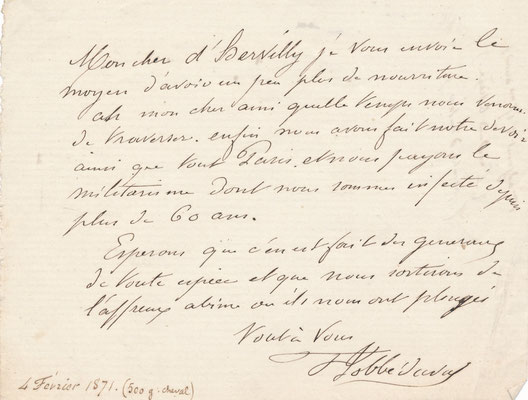 Mon cher d'Hervilly je vous envoie le
moyen d'avoir un peu plus de nourriture.
ah mon cher ami quelle temps nous venons
de traverser. enfin nous avons fait notre devoir
ainsi que tout Paris. et nous payons le
militarisme dont nous sommes infecté depuis
plus de 60 ans.
Esperons que c'en est fait des generaux
de toute espèce et que nous sortirons de
l'affreux abime ou ils nous ont plongés
Tout à vous
4 Février 1871. (500 g. cheval)